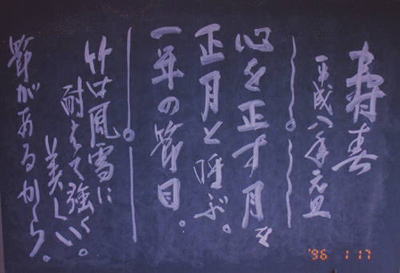 寿春
平成八年元旦
心を正す月を
正月と呼ぶ。
一年の節目。
竹は風雪に
耐えて強く。
美しい
節があるから。
'96 1 17